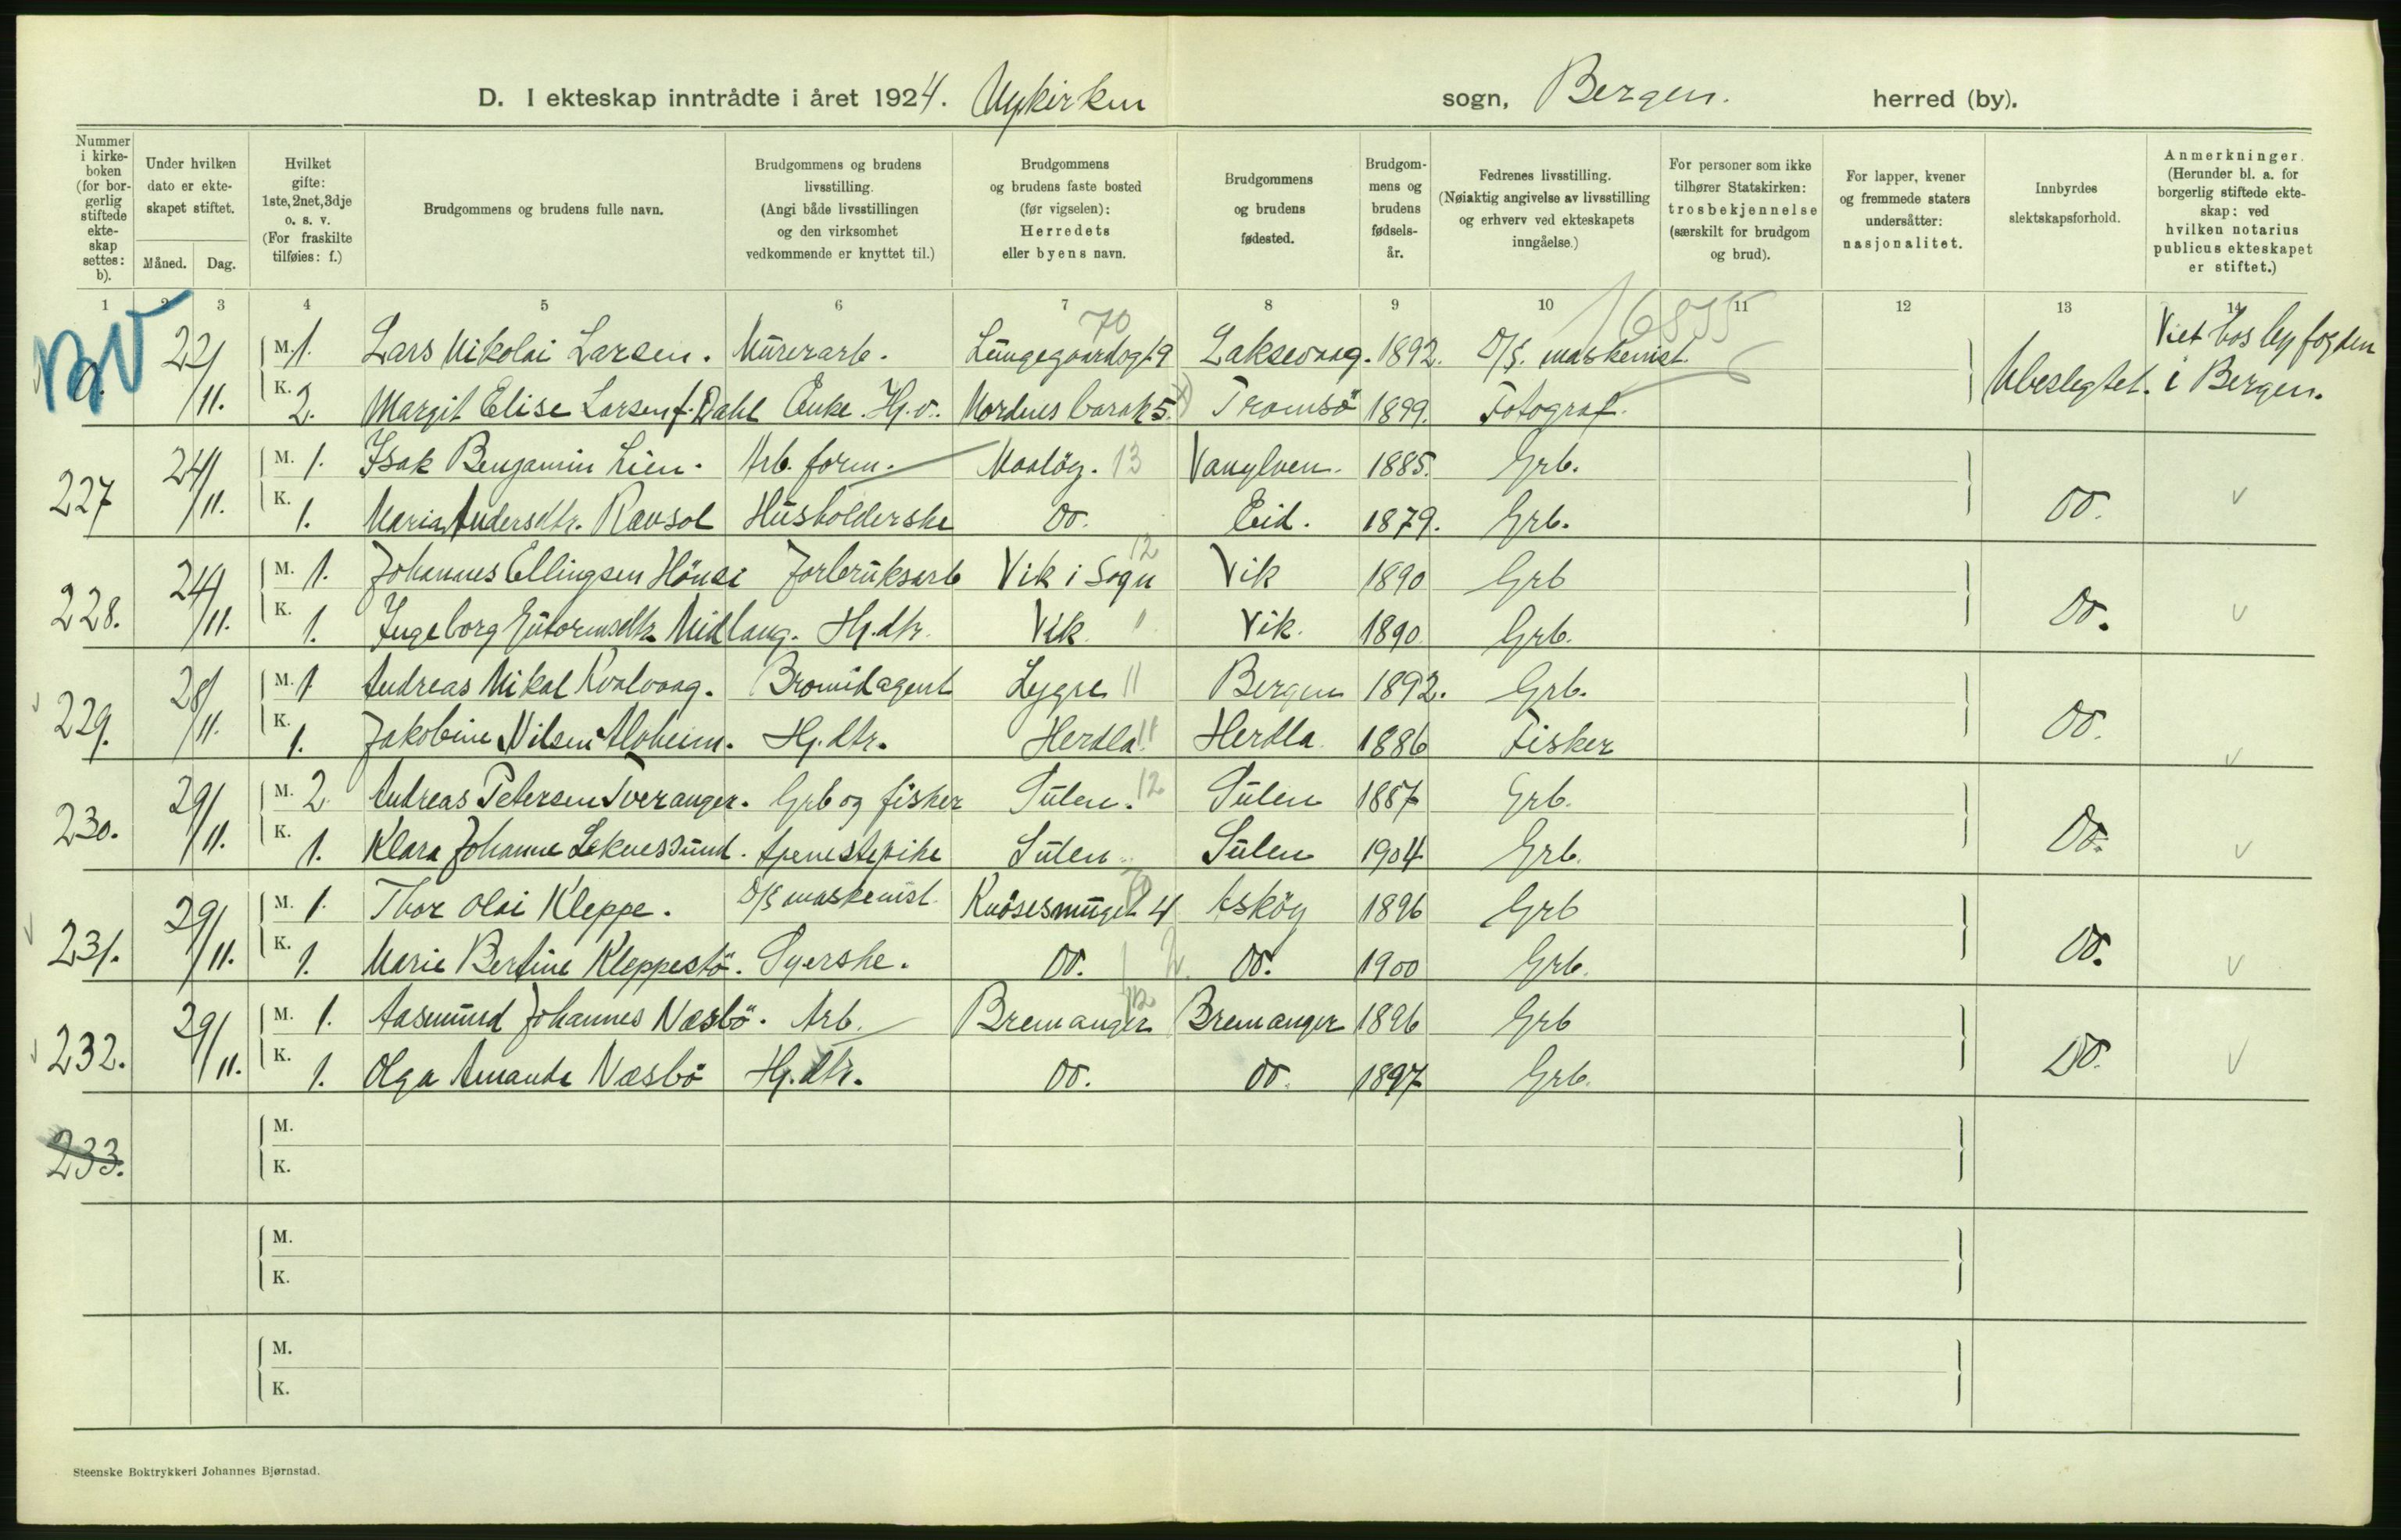 D. I ekteskap inntrådte i året 1924. Nykirken sogn, Bergen. herred (by).
Nummer i kirke-boken (for bor-gerlig stiftede ekte-skap settes: b).
Under hvilken dato er ekte-skapet stiftet.
Måned. Dag.
Hvilket gifte: 1ste, 2net, 3dje o. s. v. (For fraskilte tilføies: f.)
Brudgommens og brudens fulle navn.
Brudgommens og brudens livsstilling. (Angi både livsstillingen og den virksomhet vedkommende er knyttet til.)
Brudgommens og brudens faste bosted (før vigselen): Herredets eller byens navn.
Brudgommens og brudens fødested.
Brudgom-mens og brudens fødsels-år.
Fedrenes livsstilling. (Nøiaktig angivelse av livsstilling og erhverv ved ekteskapets inngåelse.)
For personer som ikke tilhører Statskirken: trosbekjennelse (særskilt for brudgom og brud).
For lapper, kvener og fremmede staters undersåtter: nasjonalitet.
Innbyrdes slektskapsforhold.
Anmerkninger. (Herunder bl. a. for borgerlig stiftede ekte-skap: ved hvilken notarius publicus ekteskapet er stiftet.)
1 2 3 4 5 6 7 8 9 10 11 12 13 14
BV 22/11. M. 1. Lars Nikolai Larsen. Murerarb. Lungegaardsgt 9 70 Laksevaag. 1892. D/S. maskenist 16835 Viet hos byfogden
K. 2. Margit Elise Larsen f. Dahl Enke. Hg.v. Nordnes barak 5. Tromsö 1899. Fotograf. Ubeslegtet. i Bergen.
227 24/11. M. 1. Isak Benjamin Lien. Arb. form. Maalöy. 13 Vanylven. 1885. Grb.
K. 1. Maria Andersdtr. Ravsol Husholderske Do. Eid. 1879. Grb. Do.
228. 24/11. M. 1. Johannes Ellingsen Hönsi Jorbruksarb Vik i Sogn 12 Vik 1890 Grb
K. 1. Ingeborg Gutormsdtr. Midlang. Hg.dtr. Vik. Vik. 1890 Grb. Do.
229. 28/11. M. 1 Andreas Nikal Kvalvaag. Bromidagent Lygre 11 Bergen 1892. Grb.
K. 1. Jakobine Nilsen Alvheim. Hg. dtr. Herdla 11 Herdla 1886 Fisker Do.
230. 29/11. M. 2 Andreas Petersen Tveranger. Grb og fisker Sulen. 12 Sulen 1887 Grb.
K. 1. Klara Johanne Leknessund. tjenestepike Sulen Sulen 1904 Grb. Do.
231. 29/11. M. 1. Thor Olai Kleppe. D/S maskenist. Knösesmuget 4 Asköy 1896 Grb
K. 1. Marie Bertine Kleppestö. Syerske. Do. Do. 1900 Grb. Do.
232. 29/11. M. 1. Aasmund Johannes Næsbö. Arb. Bremanger 12 Bremanger 1896 Grb
K. 1. Olga Amanda Næsbö Hg. dtr. Do. Do. 1897 Grb. Do.
233. M.
K.
M.
K.
M.
K.
Steenske Boktrykkeri Johannes Bjørnstad.